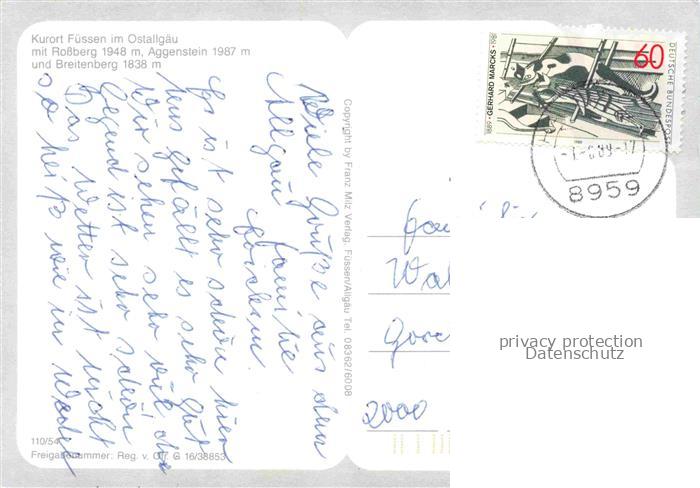 Kurort Füssen im Ostallgäu
mit Roßberg 1948 m, Aggenstein 1987 m
und Breitenberg 1838 m
Viele Grüße aus dem
Allgäu Familie
Es ist sehr schön hier
Uns gefällt es sehr gut
Wir sehen sehr viel die
Gegend ist sehr schön
Das Wetter ist nicht
so heiß wie in
110/54
Freigabenummer: Reg. v. Obb. G 16/38853
Copyright by Franz Milz Verlag, Füssen/Allgäu Tel. 08362/6008
1889 · GERHARD MARCKS · 1981
60
DEUTSCHE BUNDESPOST
1989
8959
2000
privacy protection
Datenschutz